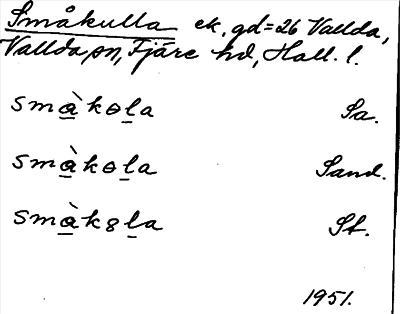 Småkulla ek, gd=26 Vallda,
Vallda sn, Fjäre hd, Hall. l.
smà̲kɵl̲a Sa.
smà̲kɵl̲a Sand.
smà̲k8l̲a St.
1951.